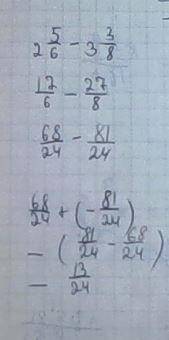 2 5/6 - 3 3/8
17/6 - 27/8
68/24 - 81/24
68/24 + (- 81/24)
- (81/24 - 68/24)
- 13/24